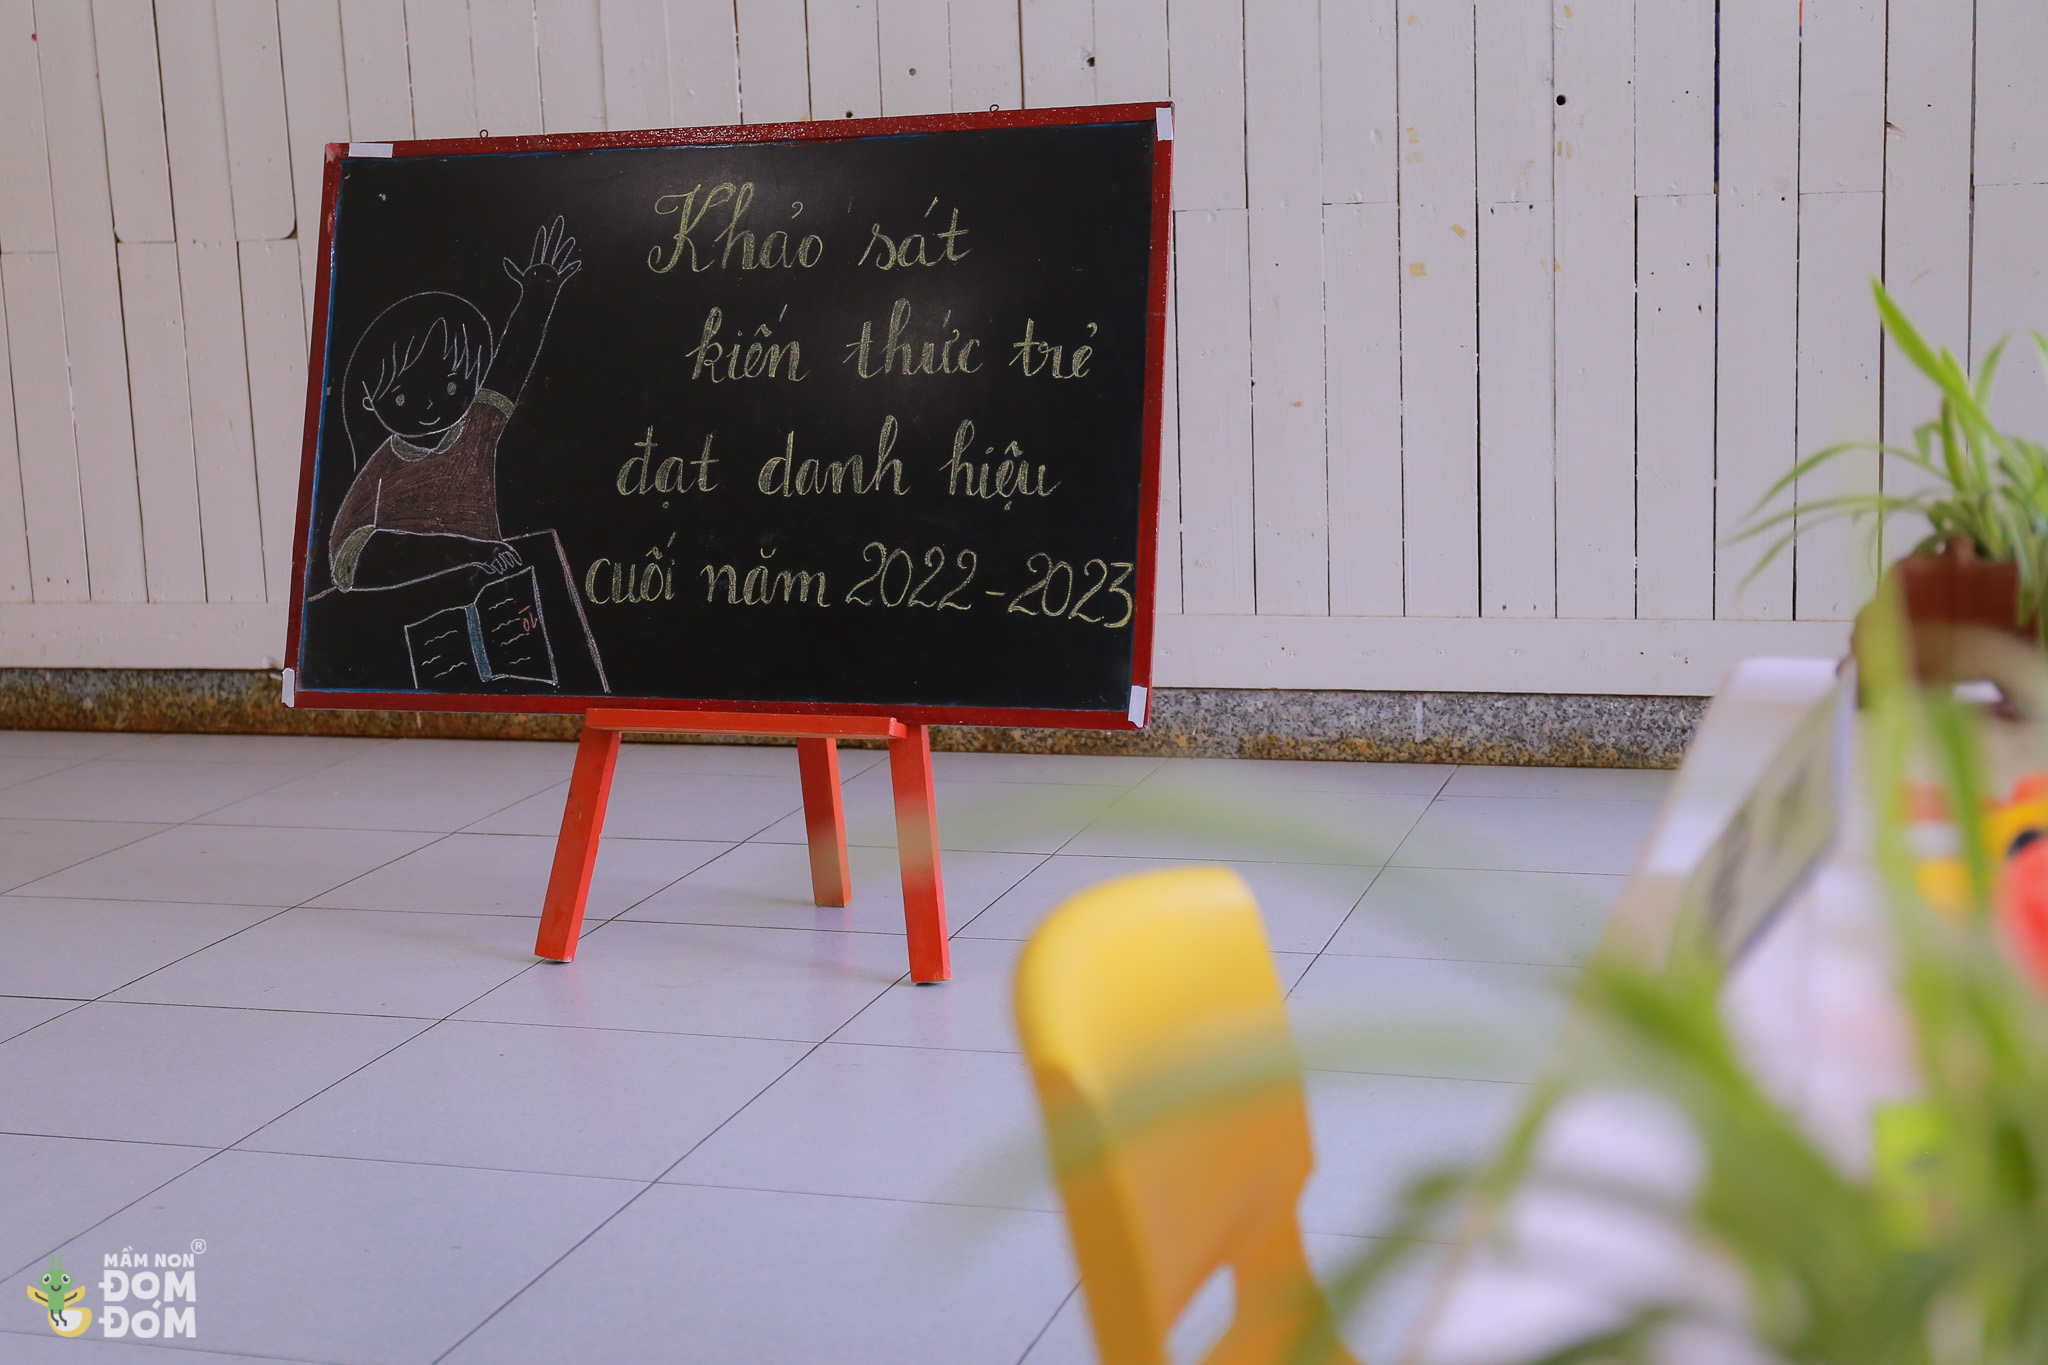 Khảo sát
kiến thức trẻ
đạt danh hiệu
cuối năm 2022-2023
10
MẦM NON®
ĐOM
ĐÓM